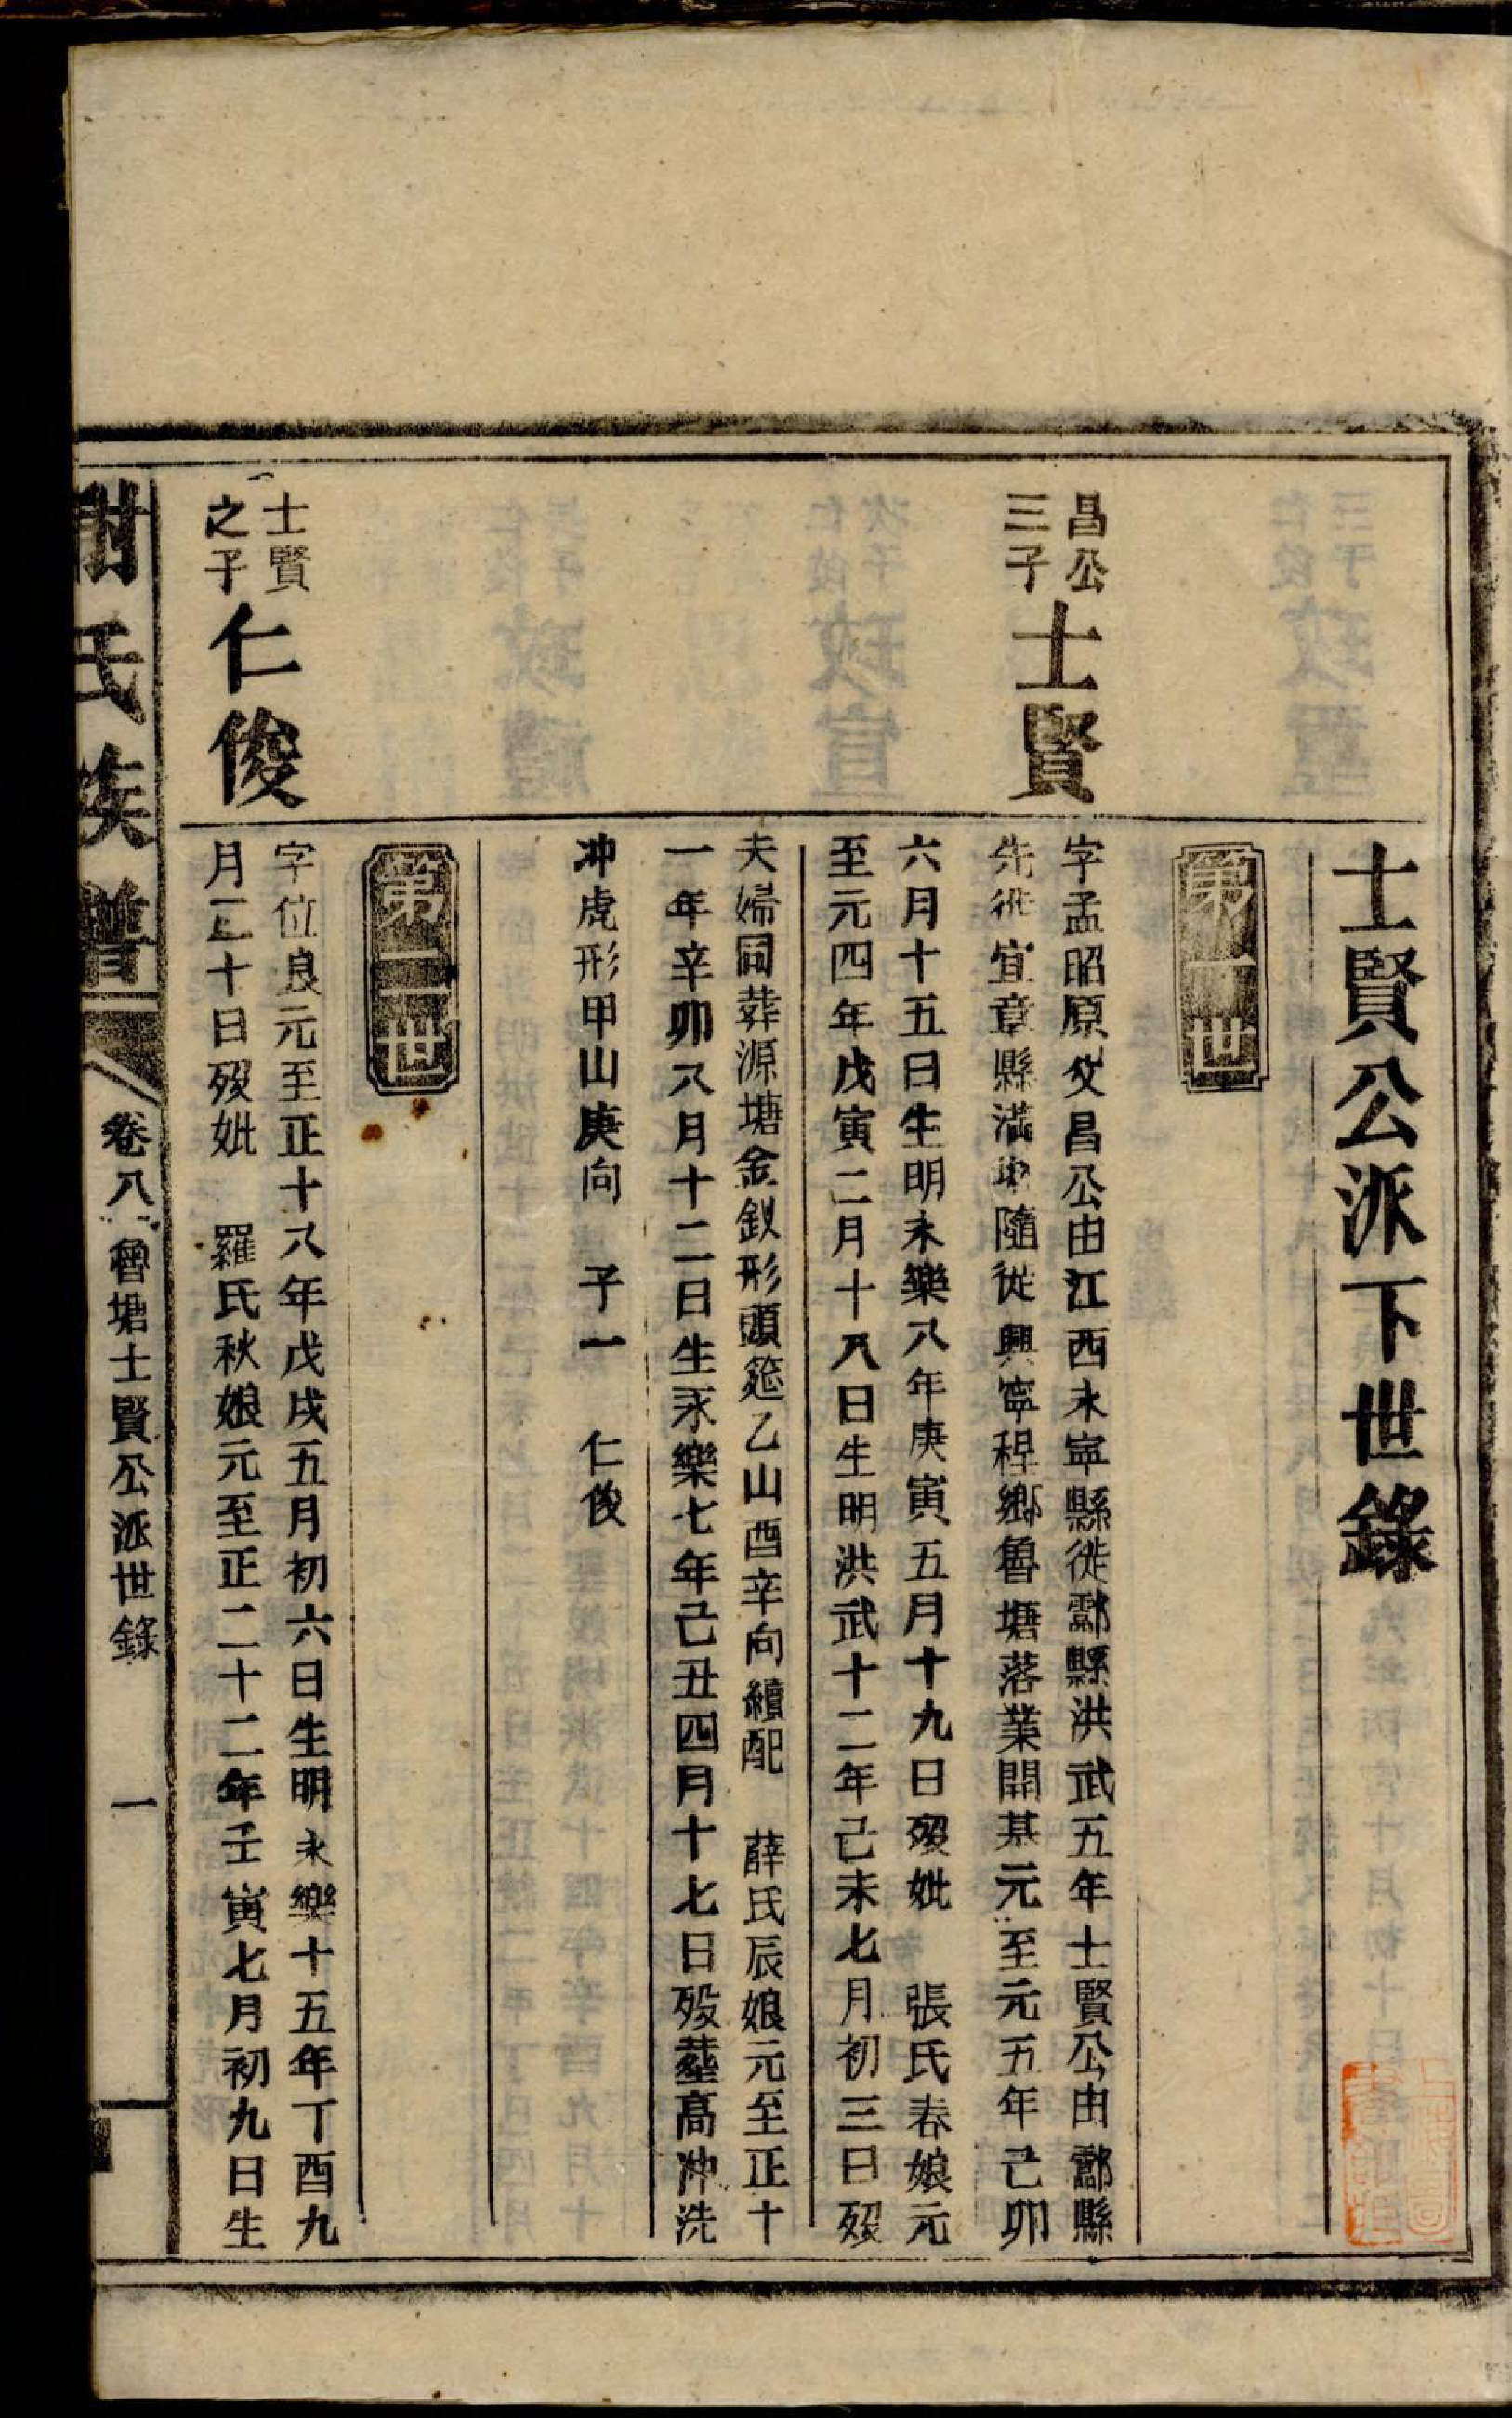 士賢公派下世錄
第一世
昌公
三子
士賢
字孟昭原父昌公由江西永寧縣徙酃縣洪武五年士賢公由酃縣
先徙宜章縣滿地隨從興寧程鄉魯塘落業開基元至元五年己卯
六月十五日生明永樂八年庚寅五月十九日歿妣　張氏春娘元
至元四年戊寅二月十八日生明洪武十二年己未七月初三日歿
夫婦同葬源塘金釵形頭筵乙山酉辛向續配　薛氏辰娘元至正十
一年辛卯八月十二日生永樂七年己丑四月十七日歿塟高冲洗
冲虎形甲山庚向　子一　仁俊
第二世
士賢
之子
仁俊
字位良元至正十八年戊戌五月初六日生明永樂十五年丁酉九
月三十日歿妣　羅氏秋娘元至正二十二年壬寅七月初九日生
謝氏族譜
卷八 魯塘士賢公派世錄
一